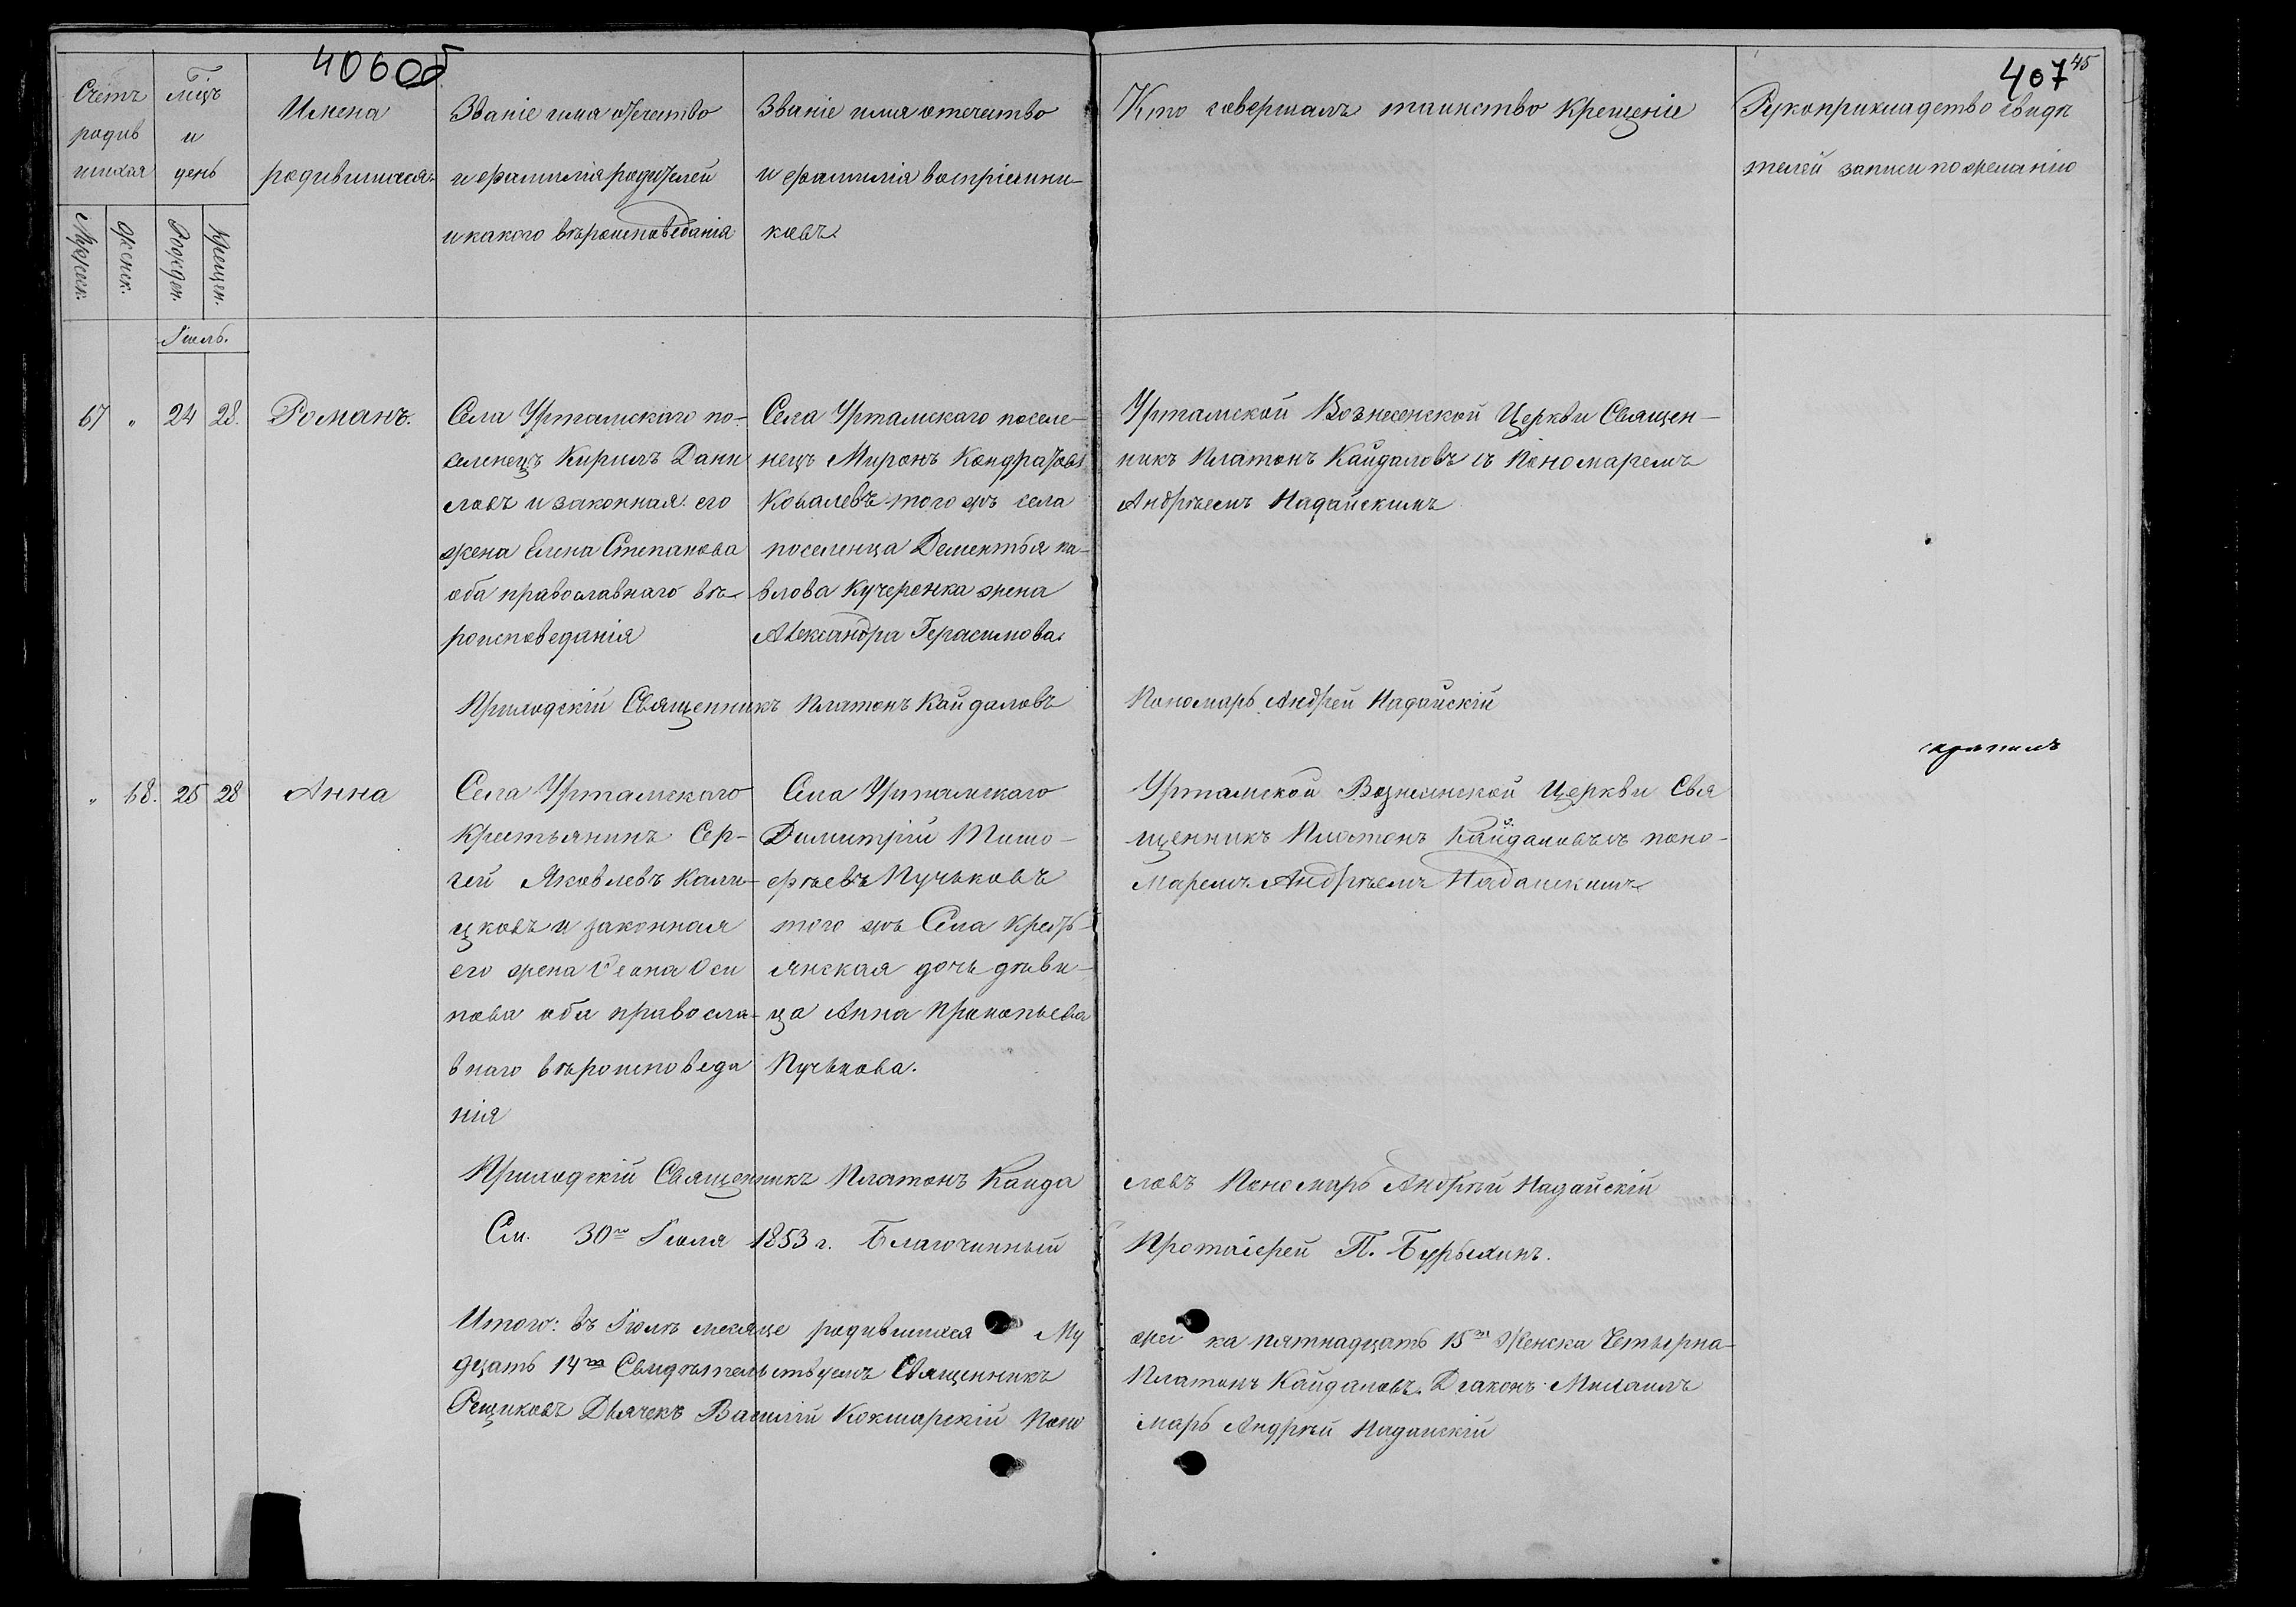 406об
407 45
Счетъ родив шихся
Мужеск.
Женск.
Мѣцъ и день
Рожден.
Крещен.
Имена
родившихся
Званіе имя отечество
и фамилія родителей
и какого вѣроисповеданія
Званіе имя отечество
и фамилія воспріимни-
ковъ
Кто совершалъ таинство крещеніе
Рукоприкладство свидѣ
телей записи по желанію
Іюль.
67 " 24 28. Романъ.
Села Уртамскаго по-
селенецъ Кирилъ Дани
ловъ и законная его
жена Елена Степанова
оба православнаго вѣ-
роисповеданія
Села Уртамскаго поселе-
нецъ Миронъ Кондратовъ
Ковалевъ того жъ села
поселенца Дементья па-
влова Кучеренка жена
Александра Герасимова.
Уртамской Вознесенской Церкви Священ-
никъ Платонъ Кайдаловъ съ Пономаремъ
Андрѣемъ Надайскимъ
Приходскій Священникъ Платонъ Кайдаловъ Пономарь Андрей Надайскій
" 68. 25 28 Анна
Села Уртамскаго
Крестьянинъ Сер-
гей Яковлевъ Кали-
цковъ и законная
его жена Оси
пова оба правосла-
внаго вѣроисповеда
нія
Села Уртамскаго
Димитрій Тимо-
фѣевъ Пучьковъ
того жъ Села Кресть-
янская дочь дѣви-
ца Анна Прокопьева
Пучькова.
Уртамской Вознесенской Церкви Свя
щенникъ Платонъ Кайдаловъ съ поно-
маремъ Андрѣемъ Надайскимъ
Приходскій Священникъ Платонъ Кайда ловъ Пономарь Андрѣй Надайскій
См. 30го Іюля 1853 г. Благочинный Протоіерей П.
Итого: въ Іюлѣ месяце родившихся Му жеска пятнадцать 15ть Женска Четырна-
дцать 14ть Свидѣтельствуемъ Священникъ Платонъ Кайдаловъ. Діаконъ Михаилъ
Рещиковъ Дьячекъ Василій Кокшарскій Поно марь Андрѣй Надайскій